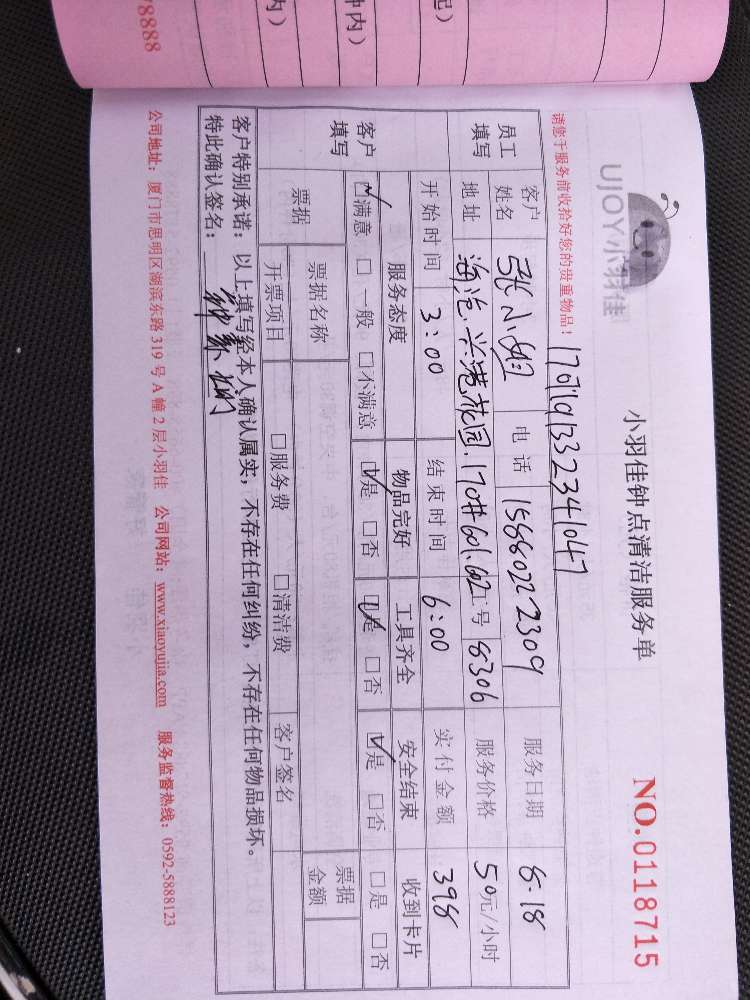 8888
内）
钟内）
起）
UJOY小羽佳
小羽佳钟点清洁服务单
NO.0118715
请您于服务前收拾好您的贵重物品！
1707191332341047
员工填写
客户姓名 张小姐 电话 15880222309 服务日期 8.18
地址 海沧.兴港花园.170#601.602 工号 8306 服务价格 50元/小时
开始时间 3:00 结束时间 6:00 实付金额 398
客户填写
服务态度 物品完好 工具齐全 安全结束 收到卡片
☑满意 □一般 □不满意 ☑是 □否 ☑是 □否 ☑是 □否 □是 □否
票据 票据名称 票据金额
开票项目 □服务费 □清洁费 客户签名
客户特别承诺：以上填写经本人确认属实，不存在任何纠纷，不存在任何物品损坏。
特此确认签名：
公司地址：厦门市思明区湖滨东路319号A幢2层小羽佳 公司网站：www.xiaoyujia.com 服务监督热线：0592-5888123